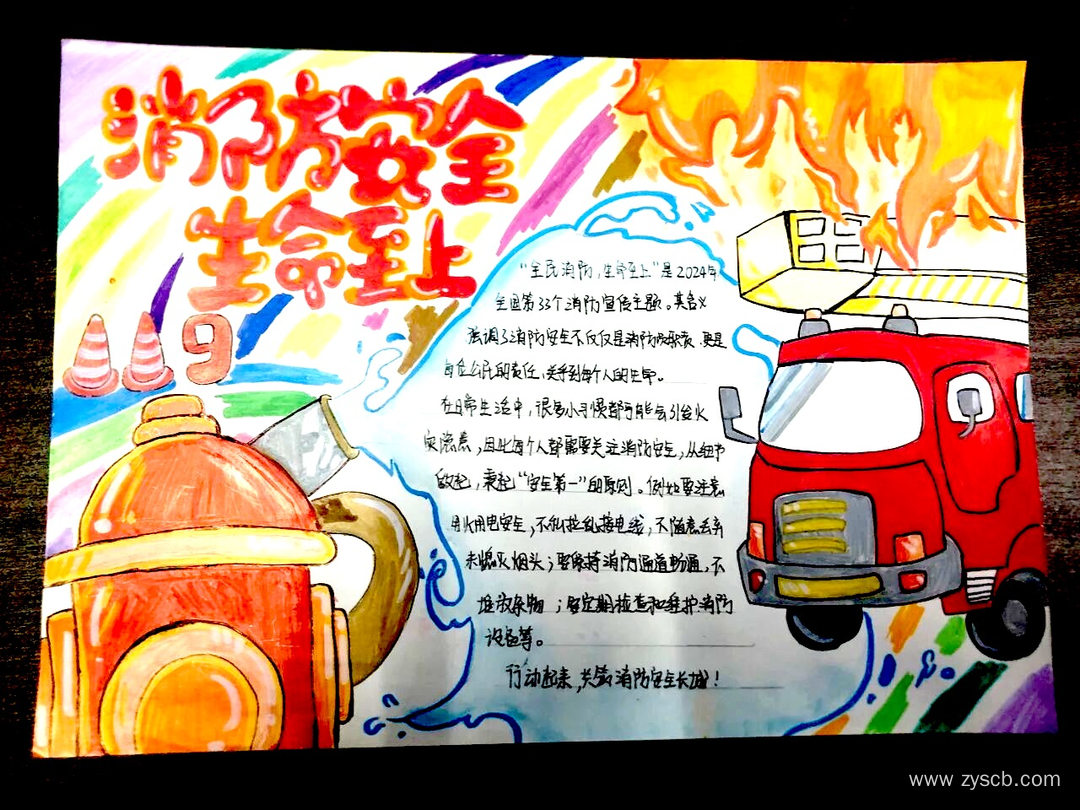 消防安全
生命至上
119
“全民消防，生命至上”是2024年
全国第33个消防宣传主题。其含义
强调了消防安全不仅仅是消防队职责，更是
每位公民的责任，关乎到每个人的生命。
在日常生活中，很多小习惯都可能会引发火
灾隐患，因此每个人都需要关注消防安全，从细节
做起，秉起“安全第一”的原则。例如要注意
用火用电安全，不私拉乱接电线，不随意丢弃
未熄灭烟头；要保持消防通道畅通，不
堆放杂物；要定期检查和维护消防
设备等。
行动起来，共筑消防安全长城！
www.zyscb.com